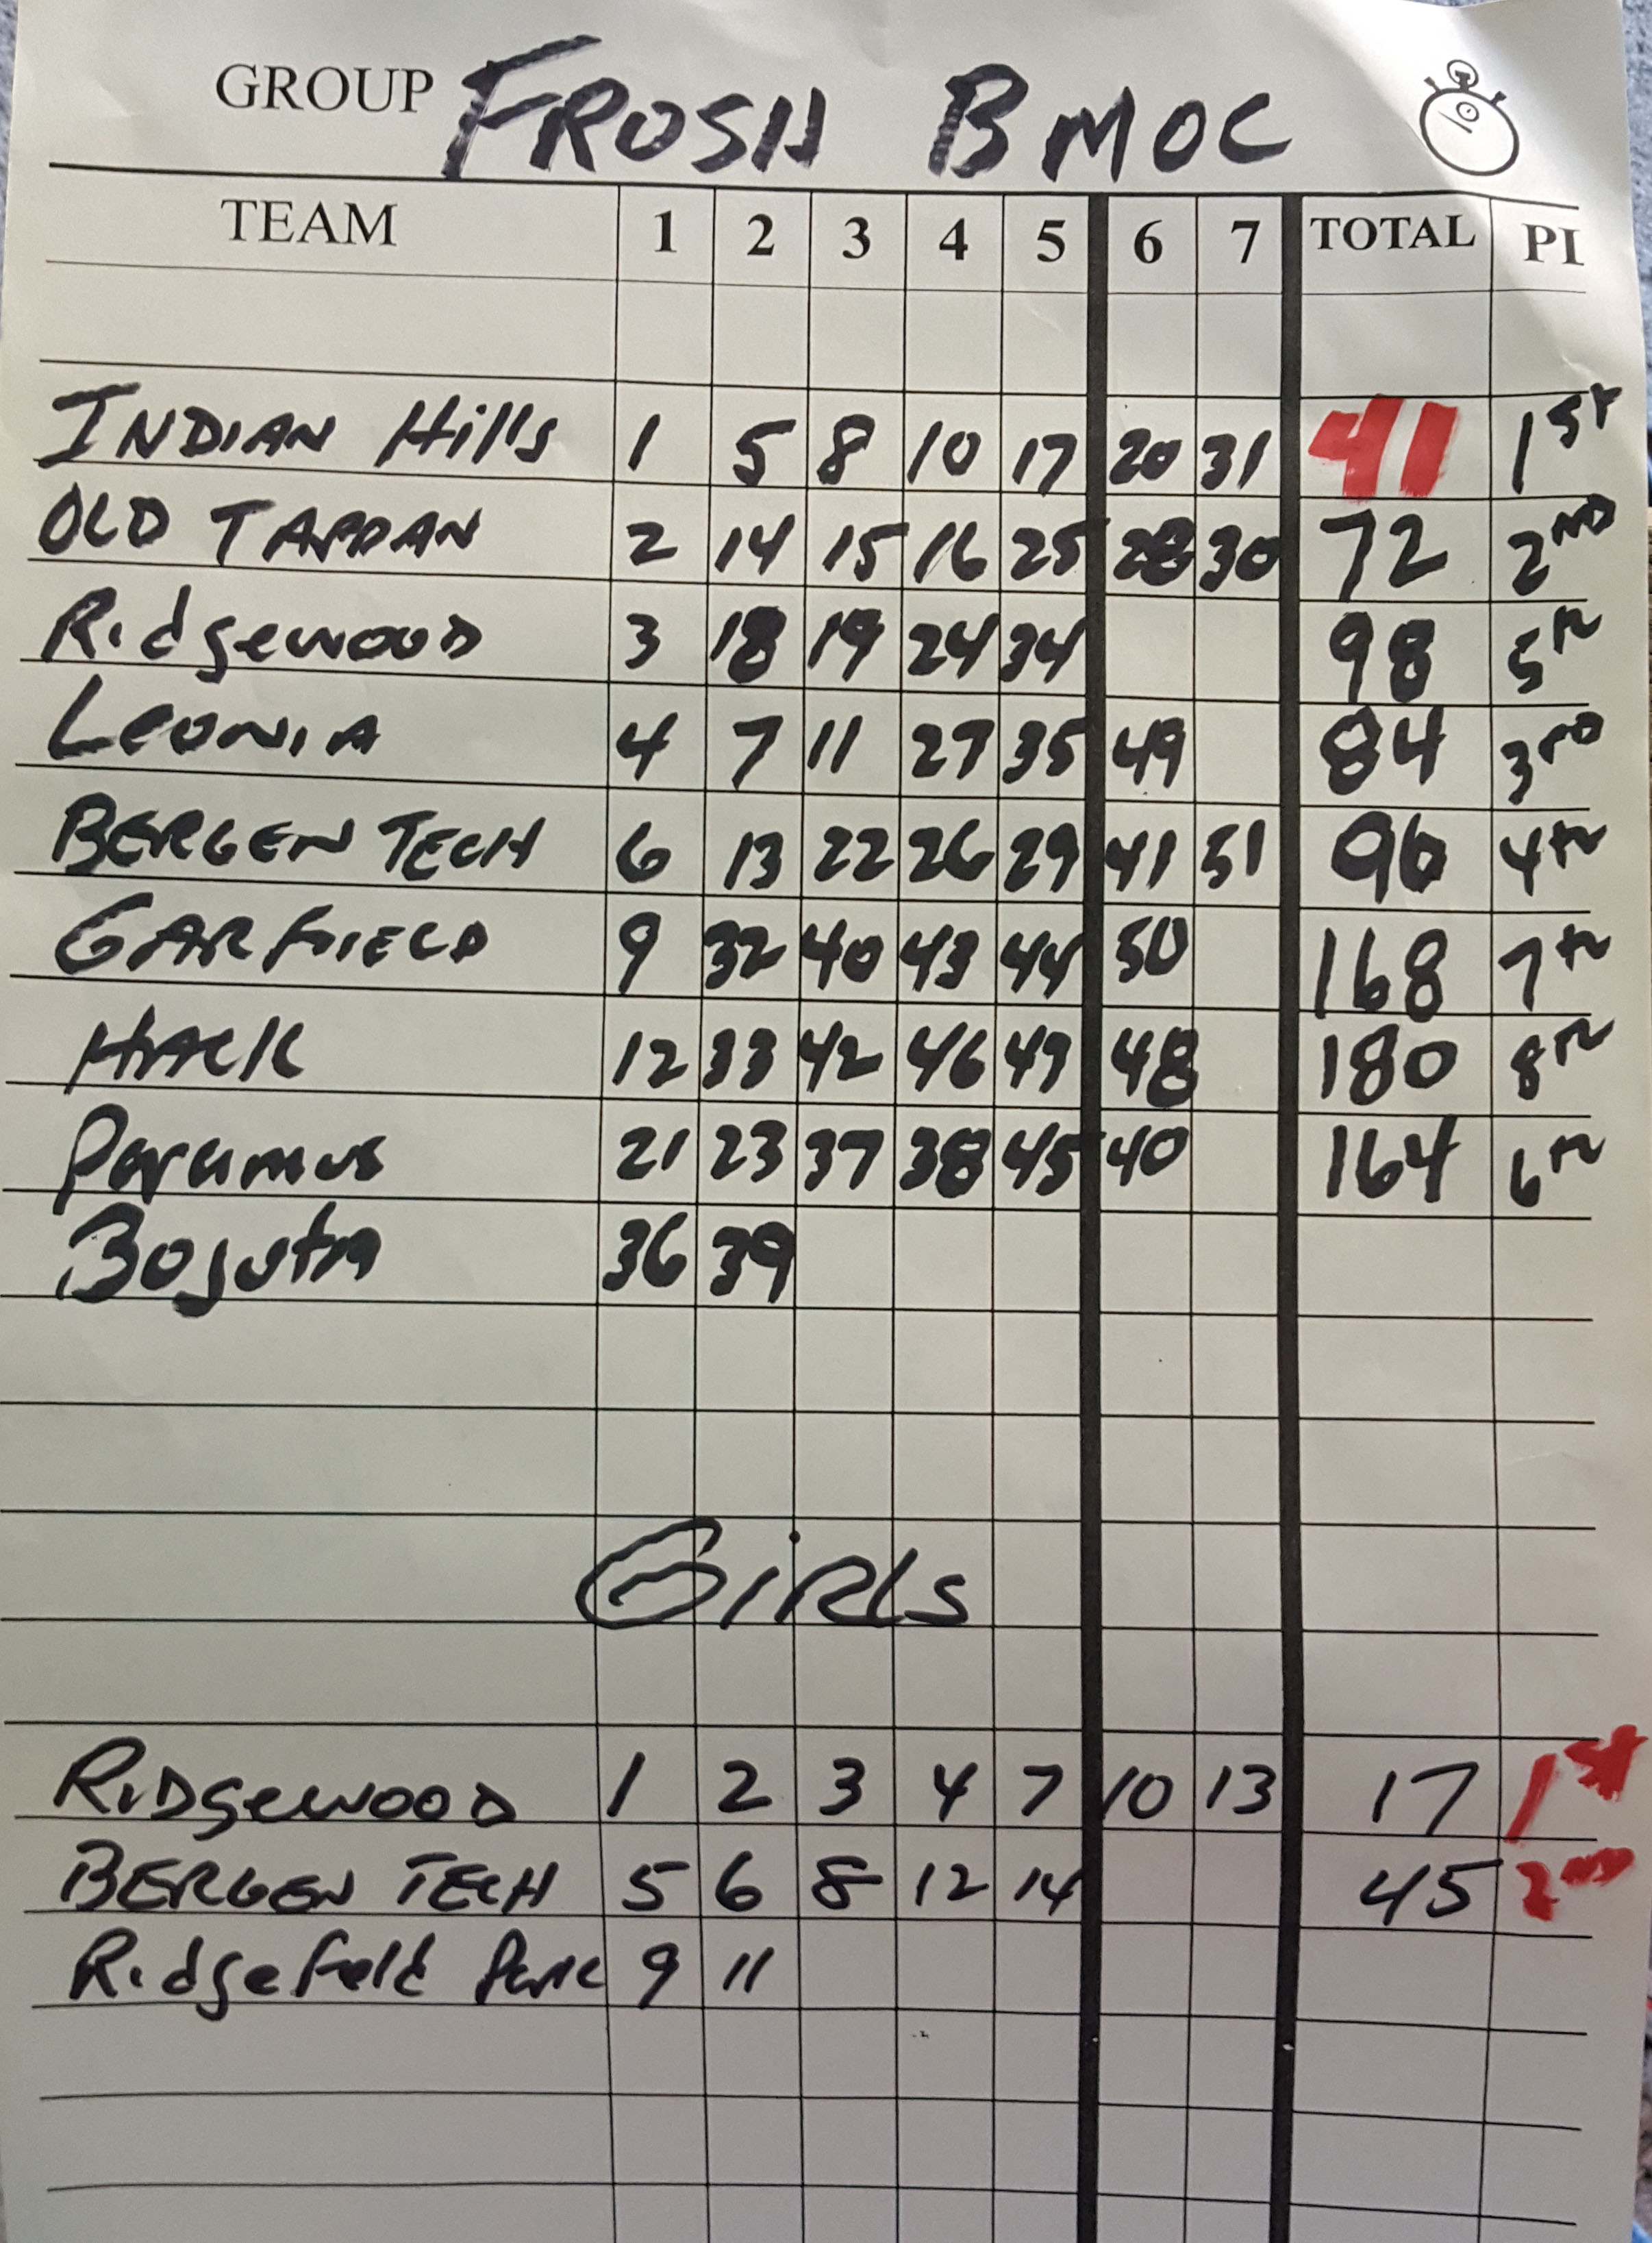 GROUP FROSH BMOC
TEAM 1 2 3 4 5 6 7 TOTAL Pl
INDIAN Hills 1 5 8 10 17 20 31 41 1ST
OLD TAPPAN 2 14 15 16 25 28 30 72 2ND
Ridgewood 3 18 19 24 34 98 5TH
LEONIA 4 7 11 27 35 49 84 3RD
BERGEN TECH 6 13 22 26 29 41 51 96 4TH
GARFIELD 9 32 40 43 44 50 168 7TH
HACK 12 33 42 46 47 48 180 8TH
Paramus 21 23 37 38 45 40 164 6TH
Bogota 36 39
GiRLS
RiDgewooD 1 2 3 4 7 10 13 17 1st
BERGEN TECH 5 6 8 12 14 45 2ND
Ridgefeld Park 9 11